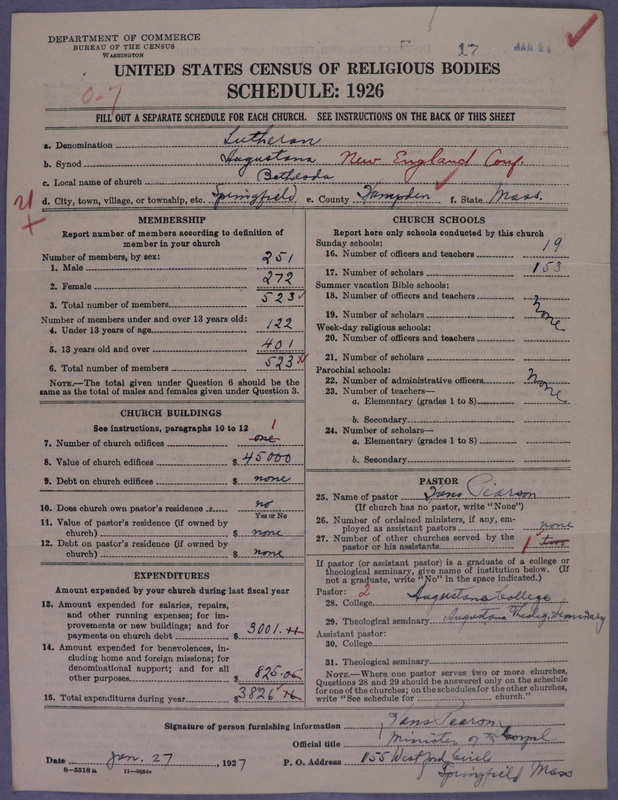 DEPARTMENT OF COMMERCE
BUREAU OF THE CENSUS
WASHINGTON
17
UNITED STATES CENSUS OF RELIGIOUS BODIES
SCHEDULE: 1926
0-7
FILL OUT A SEPARATE SCHEDULE FOR EACH CHURCH. SEE INSTRUCTIONS ON THE BACK OF THIS SHEET
a. Denomination Lutheran
b. Synod Augustana New England Conf.
c. Local name of church Bethesda
d. City, town, village, or township, etc. Springfield e. County Hampden f. State Mass.
21
MEMBERSHIP
Report number of members according to definition of
member in your church
Number of members, by sex:
1. Male 251
2. Female 272
3. Total number of members 523
Number of members under and over 13 years old:
4. Under 13 years of age 122
5. 13 years old and over 401
6. Total number of members 523
NOTE.—The total given under Question 6 should be
same as the total of males and females given under Question 3.
CHURCH BUILDINGS
See instructions, paragraphs 10 to 12
7. Number of church edifices one 1
8. Value of church edifices $ 45000
9. Debt on church edifices $ none
10. Does church own pastor's residence no
Yes or No
11. Value of pastor's residence (if owned by
church) $ none
12. Debt on pastor's residence (if owned by
church) $ none
EXPENDITURES
Amount expended by your church during last fiscal year
13. Amount expended for salaries, repairs,
and other running expenses; for im-
provements or new buildings; and for
payments on church debt $ 3001.
14. Amount expended for benevolences, in-
cluding home and foreign missions; for
denominational support; and for all
other purposes $ 825.
15. Total expenditures during year $ 3826
CHURCH SCHOOLS
Report here only schools conducted by this church
Sunday schools:
16. Number of officers and teachers 19
17. Number of scholars 153
Summer vacation Bible schools:
18. Number of officers and teachers
19. Number of scholars none
Week-day religious schools:
20. Number of officers and teachers
21. Number of scholars
Parochial schools:
22. Number of administrative officers none
23. Number of teachers—
a. Elementary (grades 1 to 8)
b. Secondary
24. Number of scholars—
a. Elementary (grades 1 to 8)
b. Secondary
PASTOR
25. Name of pastor Hans Pearson
(If church has no pastor, write "None")
26. Number of ordained ministers, if any, em-
ployed as assistant pastors none
27. Number of other churches served by the
pastor or his assistants 1 two
If pastor (or assistant pastor) is a graduate of a college or
theological seminary, give name of institution below. (If
not a graduate, write "No" in the space indicated.)
Pastor: 2
28. College Augustana College
29. Theological seminary Augustana Theolog. Seminary
Assistant pastor:
30. College
31. Theological seminary
NOTE.—Where one pastor serves two or more churches,
Questions 28 and 29 should be answered only on the schedule
for one of the churches; on the schedules for the other churches,
write "See schedule for church."
Signature of person furnishing information Hans Pearson
Official title Minister of Gospel
Date Jan. 27, 1927 P. O. Address 155 Westford Circle
Springfield Mass
8—5518a 11—9954a